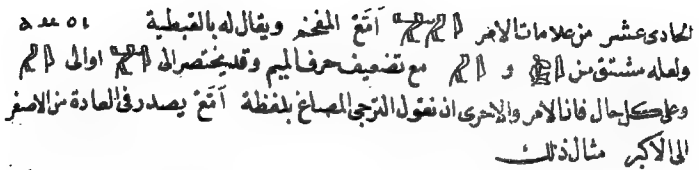 الحادى عشر من علامات الامر آمَعْ المفخم ويقال له بالقبطية
ولعله مشتق من و مع تضعيف حرف الميم وقد يختصر الى اوالى
وعلى كل حال فانا لامر والاحرى ان نقول الترجى المصاغ بلفظة آمَعْ يصدر فى العادة من الاصغر
الى الاكبر مثال ذلك